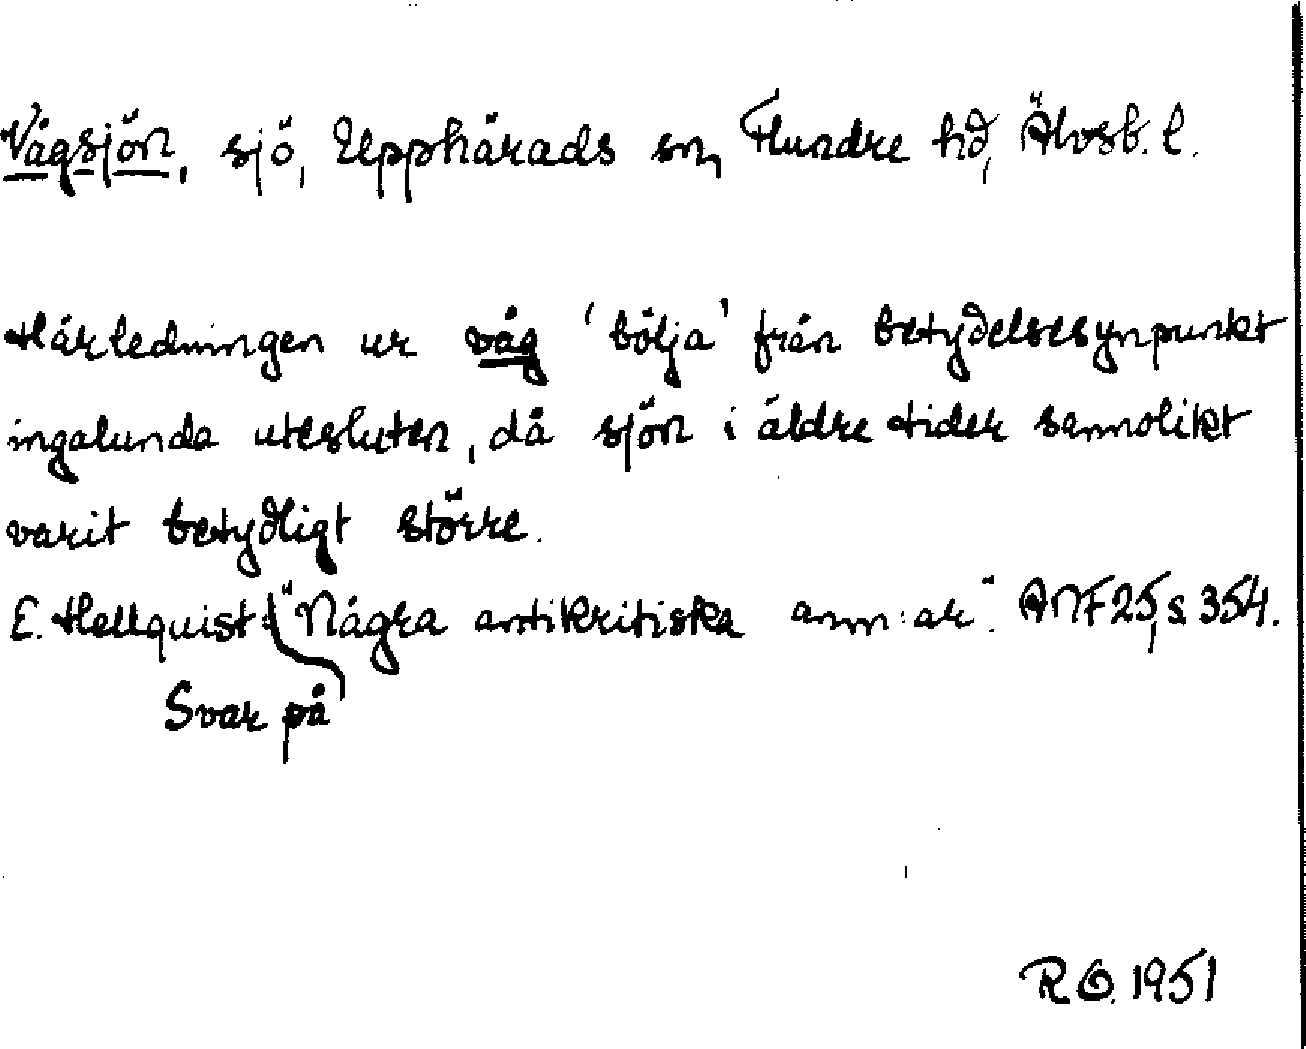 Vågsjön, sjö, Upphärads sn, Flundre hd, Älvsb. l.
Härledningen ur våg 'bölja' från betydelsesynpunkt
ingalunda utesluten, då sjön i äldre tider sannolikt
varit betydligt större.
E. Hellquist: "Några antikritiska anm:ar". ANF 25, s 354.
Svar på
RO. 1951